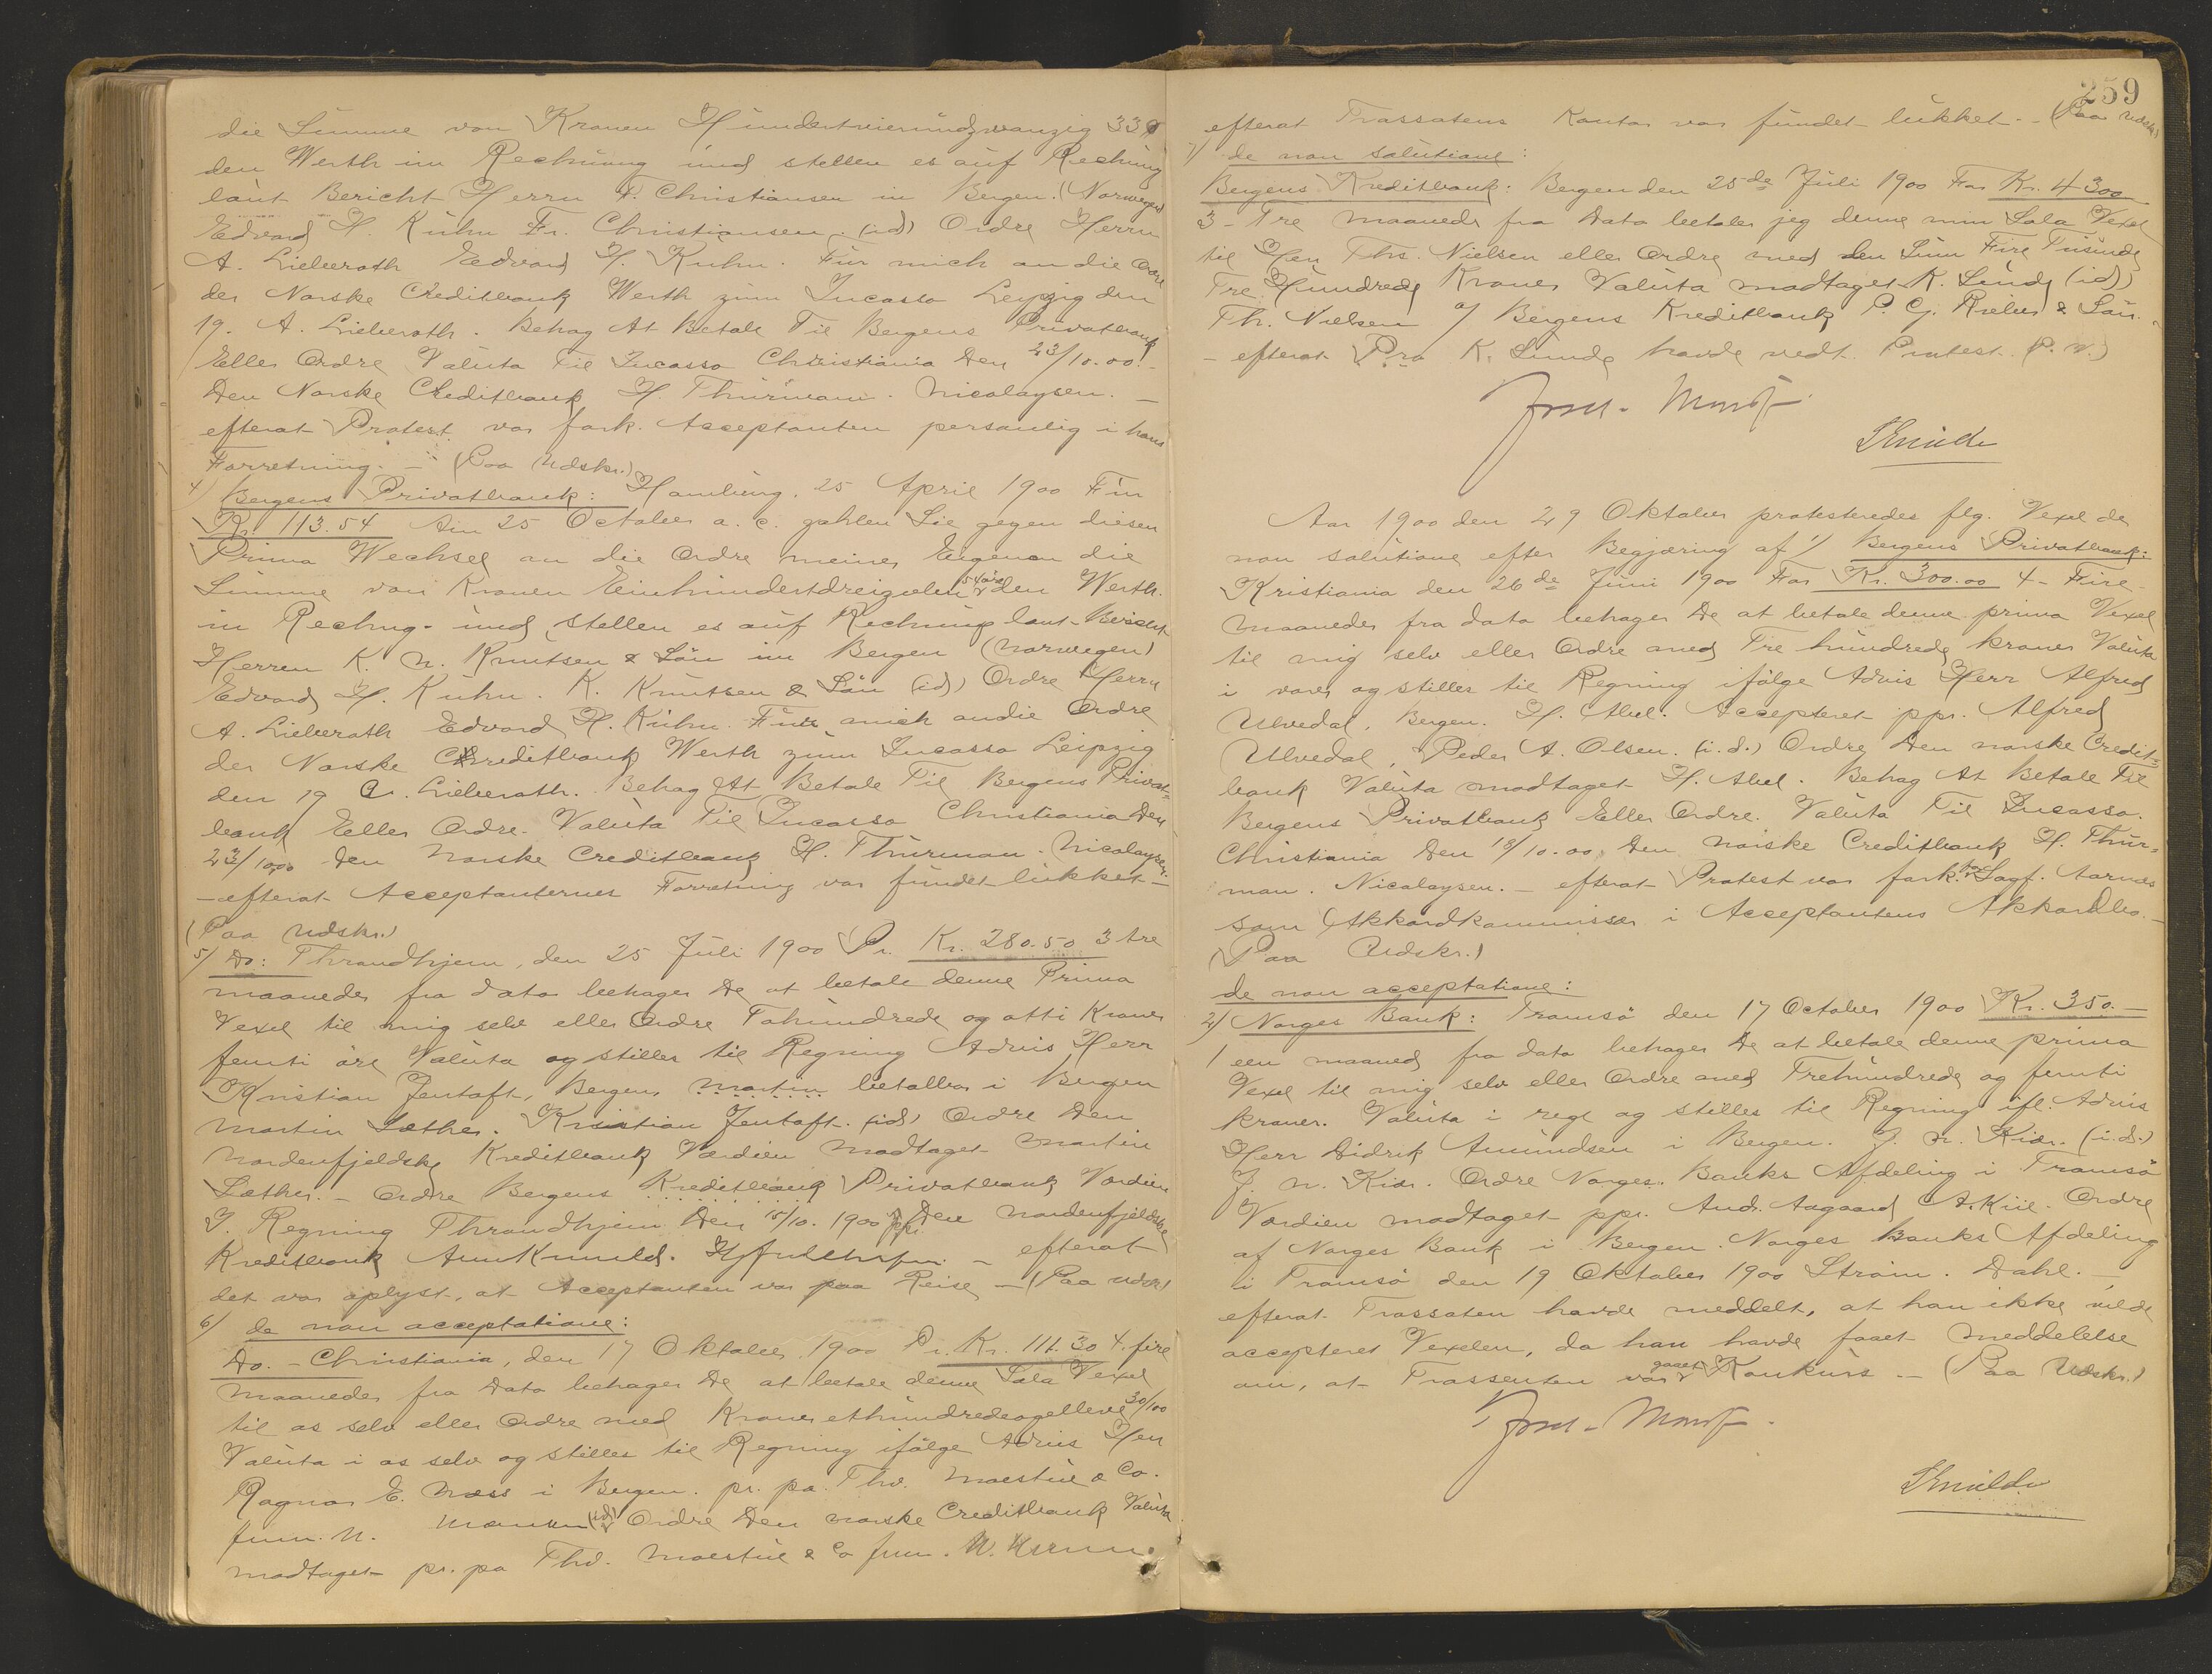 die Summe von Kronen Hundertvierundzwanzig 33ø
den Werth im Rechnung und stellen es auf Rechnung
laut Bericht Herrn F. Christiansen in Bergen. (Norwegen)
Edvard H. Kuhn Fr. Christiansen. (id) Ordre Herrn
A. Lieberoth Edvard H. Kuhn. Für mich an die Ordre
der Norske Creditbank Werth zum Incasso Leipzig den
19. A. Lieberoth. Behag At Betale Til Bergens Privatbank
Eller Ordre Valuta Til Incasso Christiania Den 23/10.00.
Den Norske Creditbank H. Thurmann. Nicolaysen. —
efterat Protest var fork. Acceptanten personlig i hans
Forretning. — (Paa Udskr.)
4) Bergens Privatbank: Hamburg. 25 April 1900 Für
Kr. 113.54 Am 25 October a. c. zahlen Sie gegen diesen
Prima Wechsel an die Ordre meiner Eigenen die
Summe von Kronen Einhundertdreizehn 54 øre den Werth
in Rechng. und stellen es auf Rechnung laut Bericht
Herren K. N. Knutsen & Sön in Bergen (Norwegen)
Edvard H. Kuhn. K. Knutsen & Sön (id) Ordre Herrn
A. Lieberoth Edvard H. Kuhn. Für mich an die Ordre
der Norske Creditbank Werth zum Incasso Leipzig
den 19 A. Lieberoth. Behag At Betale Til Bergens Privat-
bank Eller Ordre. Valuta Til Incasso Christiania Den
23/10 00 Den Norske Creditbank H. Thurman. Nicolaysen.
— efterat Acceptanternes Forretning var fundet lukket —
(Paa Udskr.)
5) Do: Throndhjem, den 25 Juli 1900 Pr. Kr. 280.50 3 tre
maaneder fra dato behager De at betale denne Prima
Vexel til mig selv eller Ordre Tohundrede og otti Kroner
femti öre Valuta og stilles til Regning Advis Herr
Kristian Jentoft, Bergen, Martin betalbar i Bergen
Martin Sæther. Kristian Jentoft. (id) Ordre Den
Nordenfjeldske Kreditbank Værdien Modtaget Martin
Sæther. — Ordre Bergens Kreditbank Privatbank Værdien
I Regning Throndhjem Den 15/10. 1900 pp. Den Nordenfjeldske
Kreditbank — efterat
det var oplyst, at Acceptanten var paa Reise — (Paa Udskr)
6) de non acceptatione:
Do. — Christiania, den 17 Oktober 1900 Pr. Kr. 111.30 4 fire
maaneder fra Dato behager De at betale denne Sola Vexel
til os selv eller Ordre med Kroner ethundredeogelleve 30/100
Valuta i os selv og stilles til Regning ifölge Advis Herr
Ragnar E. Næss i Bergen. pr. pa. Thv. Moestue & Co.
(id) Ordre Den norske Creditbank Valuta
modtaget pr. pa Thv. Moestue & Co
259
efterat Trassatens Kontor var fundet lukket. — (Paa Udskr)
7) de non solutione:
Bergens Kreditbank: Bergen den 25de Juli 1900 For Kr. 4300
3 - Tre maaneder fra Dato betaler jeg denne min Sola Vexel
til Herr Ths. Nielsen eller Ordre med den Sum Fire Tusinde
Tre Hundrede Kroner Valuta modtaget K. Lunde (id)
Th. Nielsen af Bergens Kreditbank P. G. Rieber & Sön.
— efterat Pro K. Lunde havde vedt. Protest. (P. U.)
Aar 1900 den 29 Oktober protesteredes flg. Vexel de
non solutione efter Begjæring af 1/ Bergens Privatbank:
Kristiania den 26de Juni 1900 For Kr. 300.00 4 - Fire
maaneder fra dato behager De at betale denne prima Vexel
til mig selv eller Ordre med Tre hundrede kroner Valuta
i varer og stilles til Regning ifölge Advis Herr Alfred
Ulvedal, Bergen. H. Abel. Accepteret ppr. Alfred
Ulvedal, Peder A. Olsen. (i.d.) Ordre Den norske Credit-
bank Valuta modtaget H. Abel. Behag At Betale Til
Bergens Privatbank Eller Ordre. Valuta Til Incasso.
Christiania Den 18/10.00. Den Norske Creditbank H. Thur-
man. Nicolaysen. — efterat Protest var fork. for Sagf. Aarnes
som Akkordkommissær i Acceptantens Akkordbo. —
(Paa Udskr.)
de non acceptatione:
2) Norges Bank: Tromsö den 17 October 1900 Kr. 350. —
1 een maaned fra dato behager De at betale denne prima
Vexel til mig selv eller Ordre med Trehundrede og femti
kroner. Valuta i regn og stilles til Regning ifl. Advis
Herr Didrik Amundsen i Bergen. J. N. Kiær. (i.d.)
J. N. Kiær. Ordre Norges Banks Afdeling i Tromsö
Værdien modtaget ppr. And. Aagaard A. Kiil. Ordre
af Norges Bank i Bergen. Norges Banks Afdeling
i Tromsö den 19 Oktober 1900 Ström. Dahl. —
efterat Trassaten havde meddelt, at han ikke vilde
accepteret Vexelen, da han havde faaet Meddelelse
om, at Trassenten var gaaet Konkurs. — (Paa Udskr.)